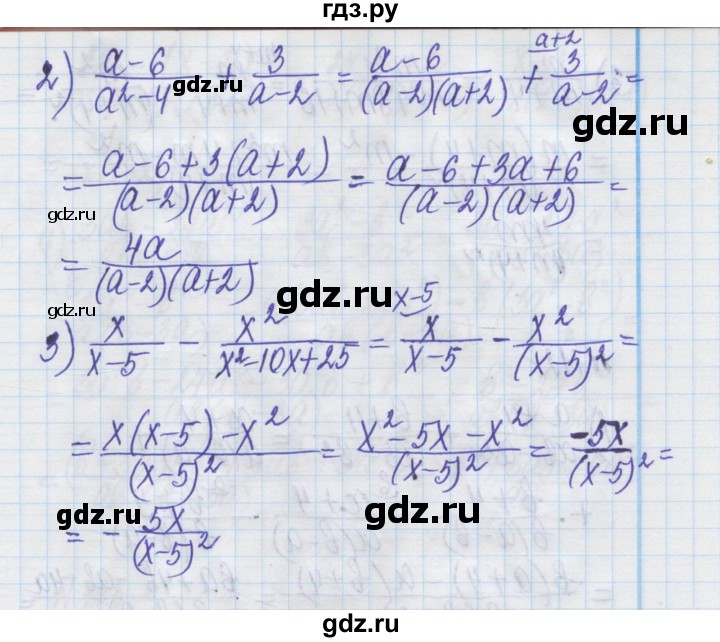 гдз.ру
2) (a-6)/(a²-4) + 3/(a-2) = (a-6)/((a-2)(a+2)) + 3/(a-2) ^(a+2) =
gdz.ru
gdz.ru
= (a-6+3(a+2))/((a-2)(a+2)) = (a-6+3a+6)/((a-2)(a+2)) =
gdz.ru
gdz.ru
= 4a/((a-2)(a+2))
gdz.ru
gdz.ru
3) x/(x-5) - x²/(x²-10x+25) = ^(x-5) x/(x-5) - x²/(x-5)² =
= (x(x-5)-x²)/(x-5)² = (x²-5x-x²)/(x-5)² = -5x/(x-5)² =
gdz.ru
gdz.ru
= - 5x/(x-5)²
gdz.ru
gdz.ru